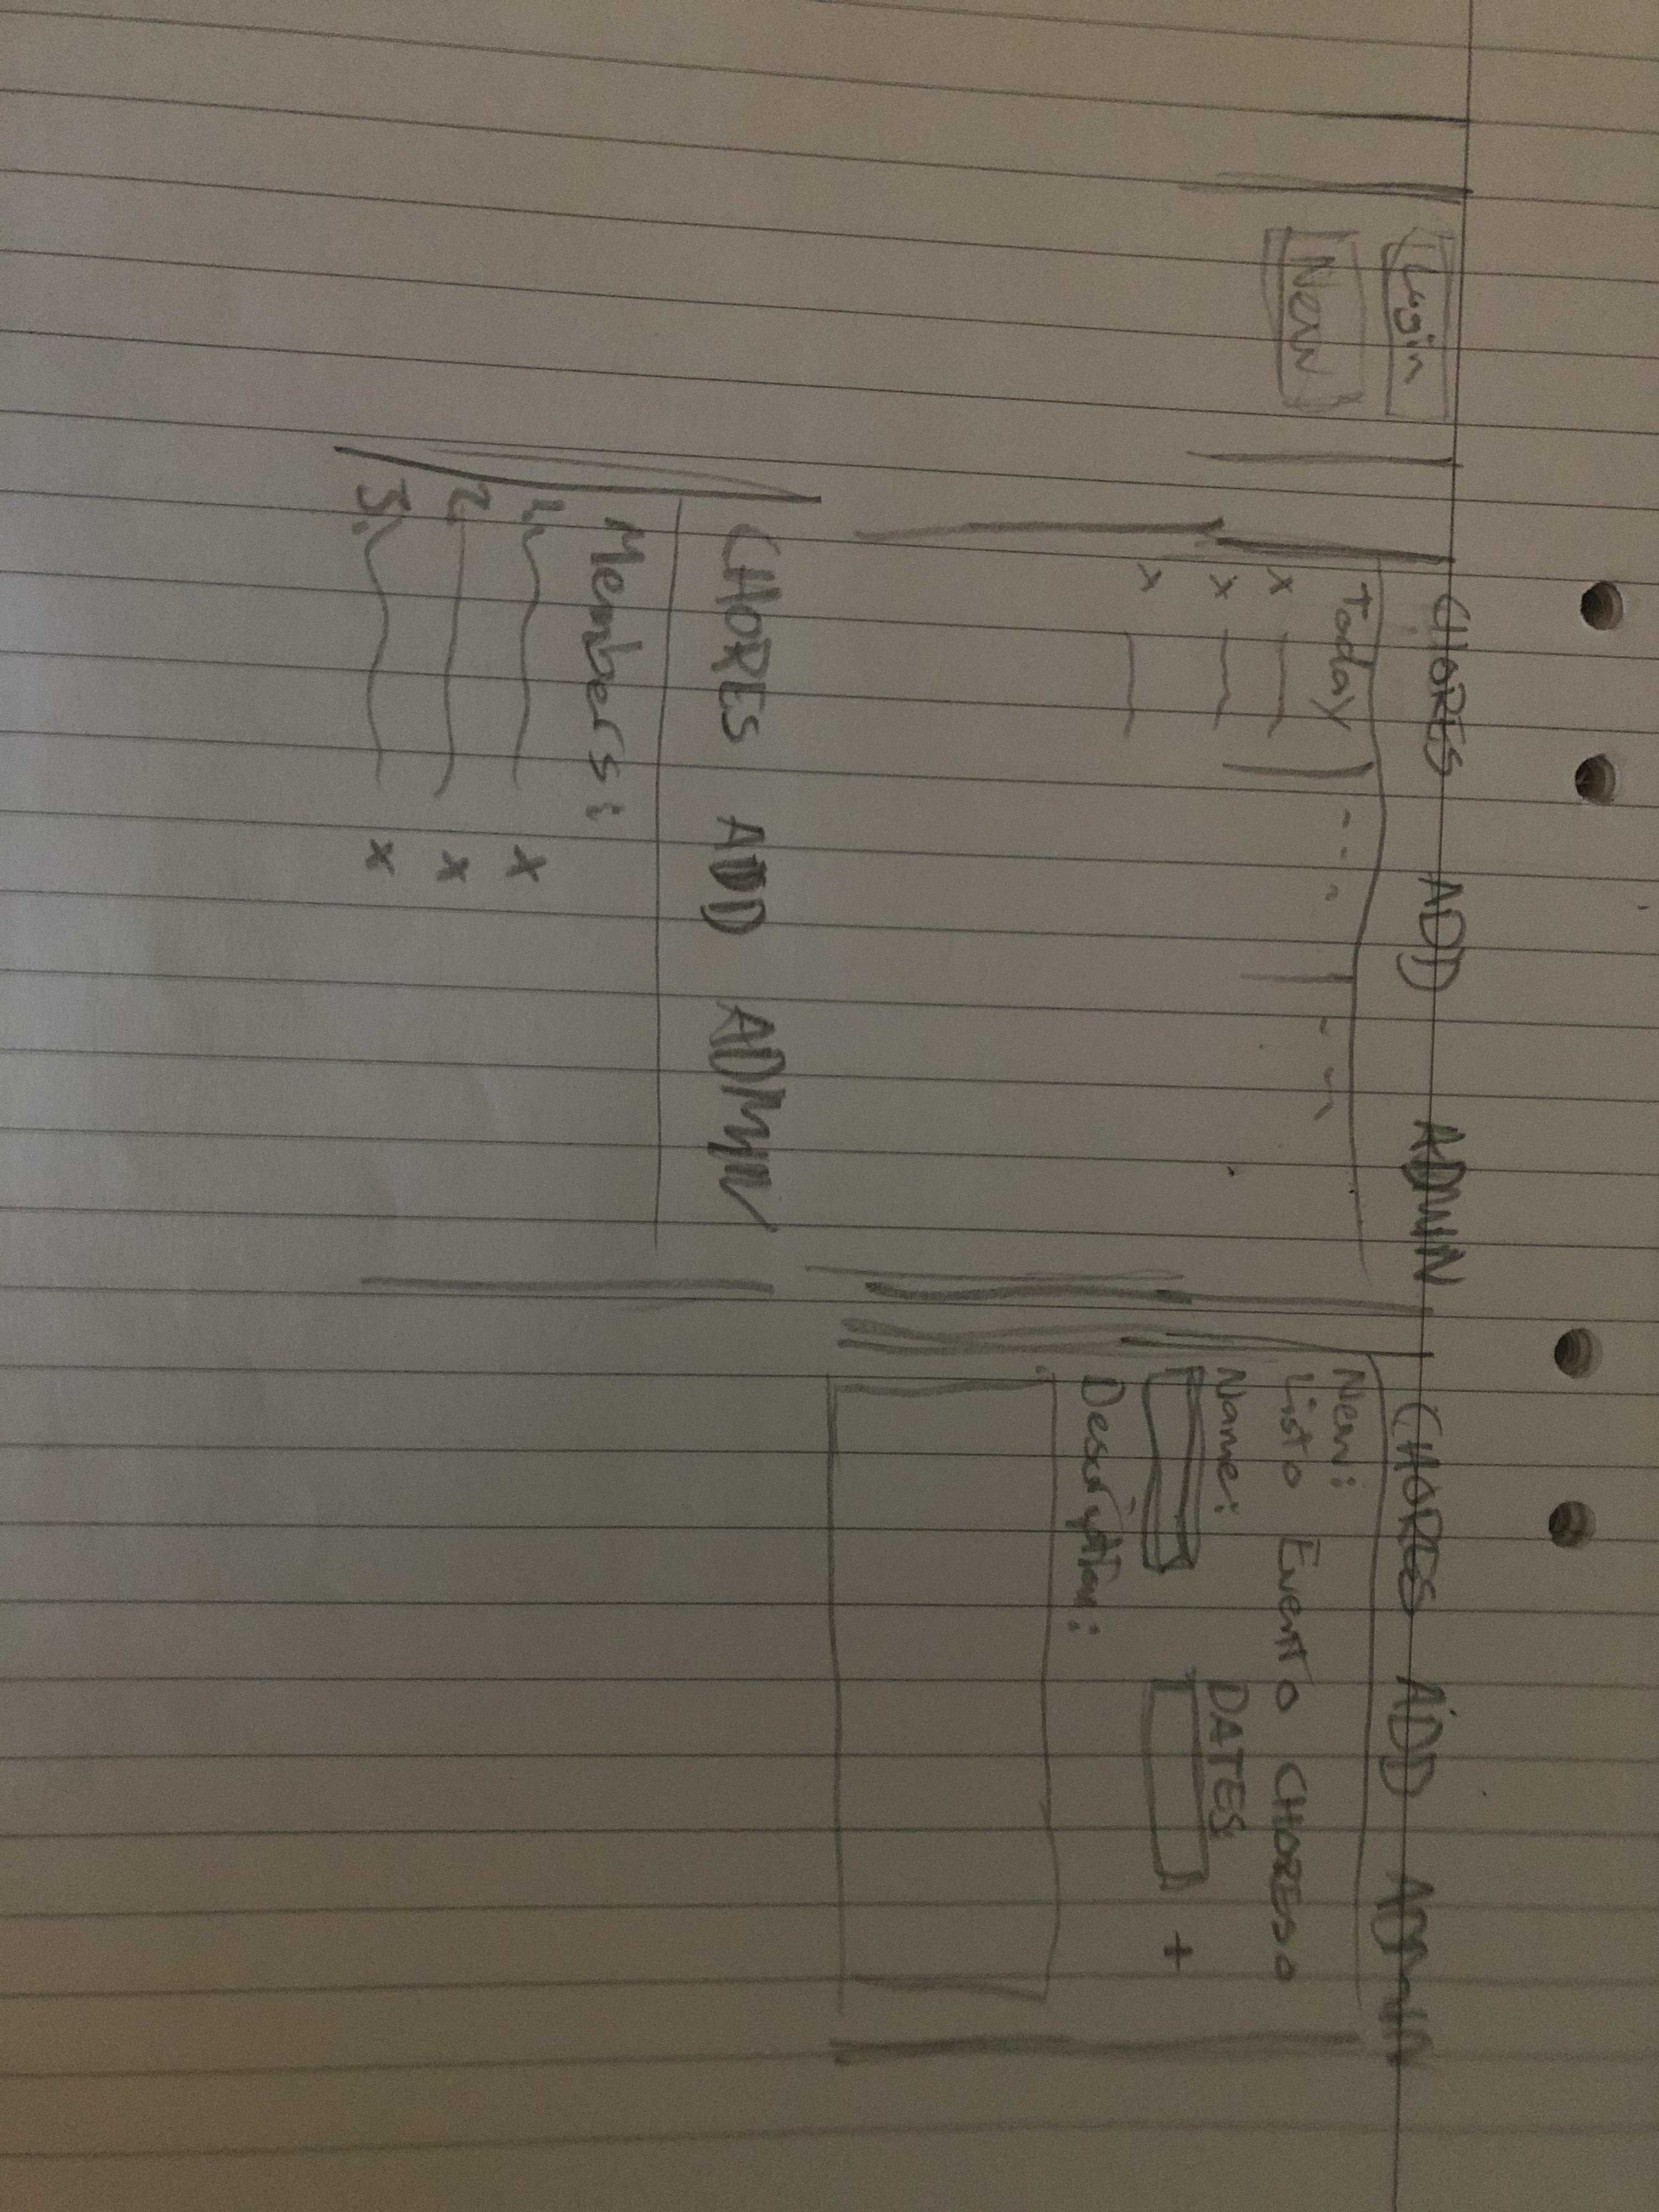 Login
New
CHORES ADD ADMIN
Today
x
x
x
CHORES ADD ADMIN
New:
List o Event o CHORES o
Name: DATES:
+
Description:
CHORES ADD ADMIN
Members:
1. x
2. x
3. x